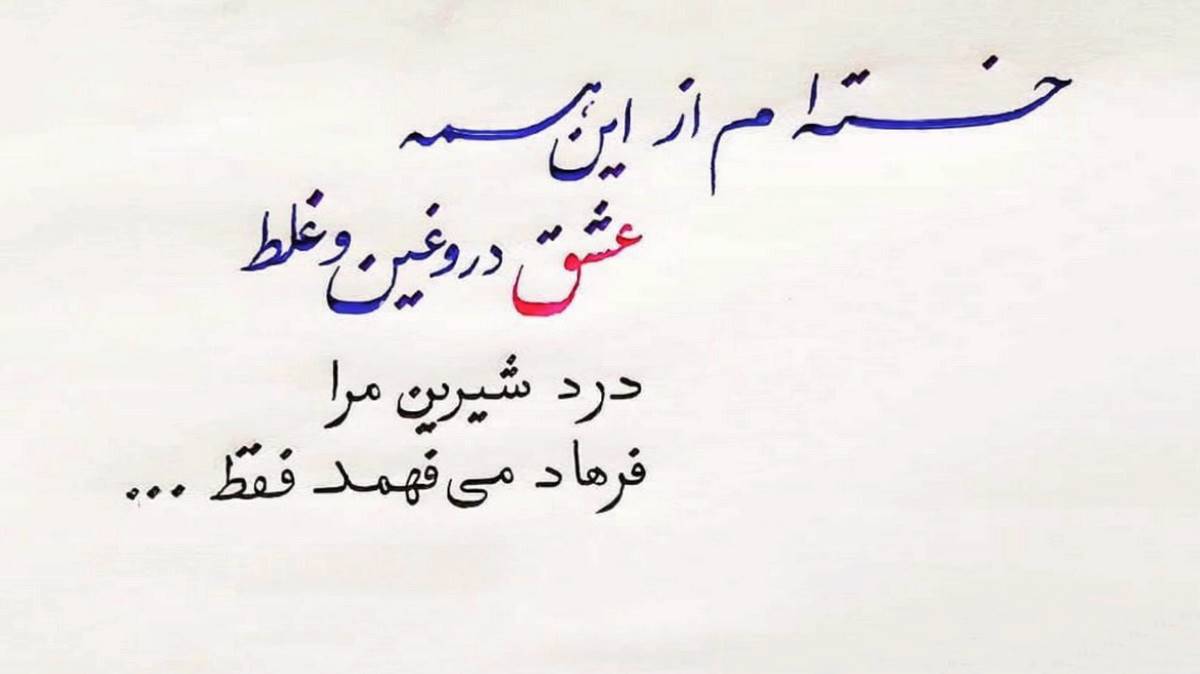 خسته ام از این همه
عشق دروغین و غلط
درد شیرین مرا
فرهاد می‌فهمد فقط ...